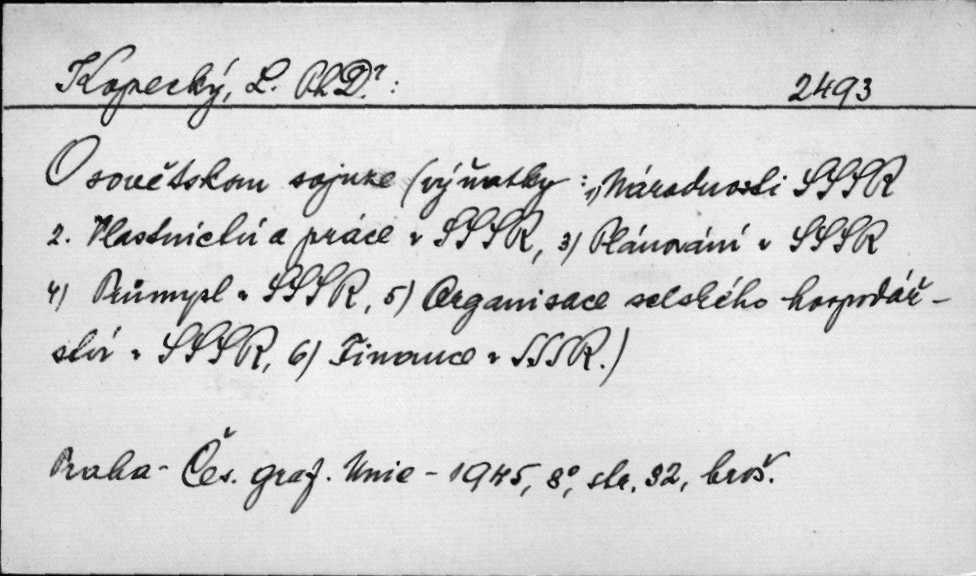 Kopecký, L. PhDr: 2493
O sovětskem sojuze (výňatky: 1, Národnosti SSSR
2. Vlastnictví a práce v SSSR, 3) Plánování v SSSR
4) Průmysl v SSSR, 5) Organisace selského hospodář-
ství v SSSR, 6) Finance v SSSR.)
Praha - Čes. graf. Unie - 1945, 8°, str. 32, brož.